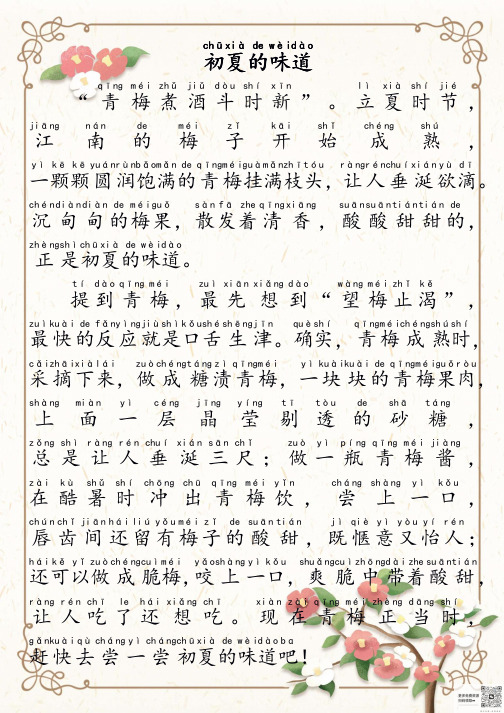 chūxià de wèidào
初夏的味道
qīng méi zhǔ jiǔ dòu shí xīn lì xià shí jié
“青梅煮酒斗时新”。立夏时节，
jiāng nán de méi zǐ kāi shǐ chéng shú
江南的梅子开始成熟，
yì kē kē yuánrùnbǎomǎn de qīngméiguàmǎnzhītóu ràngrénchuíxiányù dī
一颗颗圆润饱满的青梅挂满枝头，让人垂涎欲滴。
chéndiàndiàn de méiguǒ sànfā zhe qīngxiāng suānsuāntiántián de
沉甸甸的梅果，散发着清香，酸酸甜甜的，
zhèngshìchūxià de wèidào
正是初夏的味道。
tí dào qīng méi zuì xiān xiǎng dào wàng méi zhǐ kě
提到青梅，最先想到“望梅止渴”，
zuìkuài de fǎnyìngjiùshìkǒushéshēngjīn quèshí qīngméichéngshúshí
最快的反应就是口舌生津。确实，青梅成熟时，
cǎizhāixiàlái zuòchéngtángzì qīngméi yì kuàikuài de qīngméiguǒròu
采摘下来，做成糖渍青梅，一块块的青梅果肉，
shàng miàn yì céng jīng yíng tī tòu de shā táng
上面一层晶莹剔透的砂糖，
zǒng shì ràng rén chuí xián sān chǐ zuò yì píng qīng méi jiàng
总是让人垂涎三尺；做一瓶青梅酱，
zài kù shǔ shí chōng chū qīng méi yǐn cháng shàng yì kǒu
在酷暑时冲出青梅饮，尝上一口，
chúnchǐ jiānháiliú yǒuméizǐ de suāntián jì qiè yì yòuyí rén
唇齿间还留有梅子的酸甜，既惬意又怡人；
háikě yǐ zuòchéngcuìméi yǎoshàngyìkǒu shuǎngcuìzhōngdàizhesuāntián
还可以做成脆梅，咬上一口，爽脆中带着酸甜，
ràng rén chī le hái xiǎng chī xiàn zài qīng méi zhèng dāng shí
让人吃了还想吃。现在青梅正当时，
gǎnkuàiqù chángyì chángchūxià de wèidàoba
赶快去尝一尝初夏的味道吧！